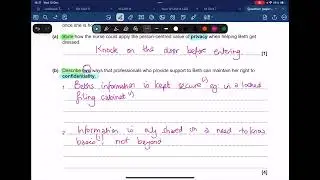 (a) State how the nurse could apply the person-centred value of privacy when helping Beth get
dressed.
Knock on the door before entering.
[1]
(b) Describe two ways that professionals who provide support to Beth can maintain her right to
confidentiality.
1 Beths information is kept secure (1) eg: in a locked
filing cabinet (1)
2 Information is only shared on a need to know
basis (1) not beyond
[4]